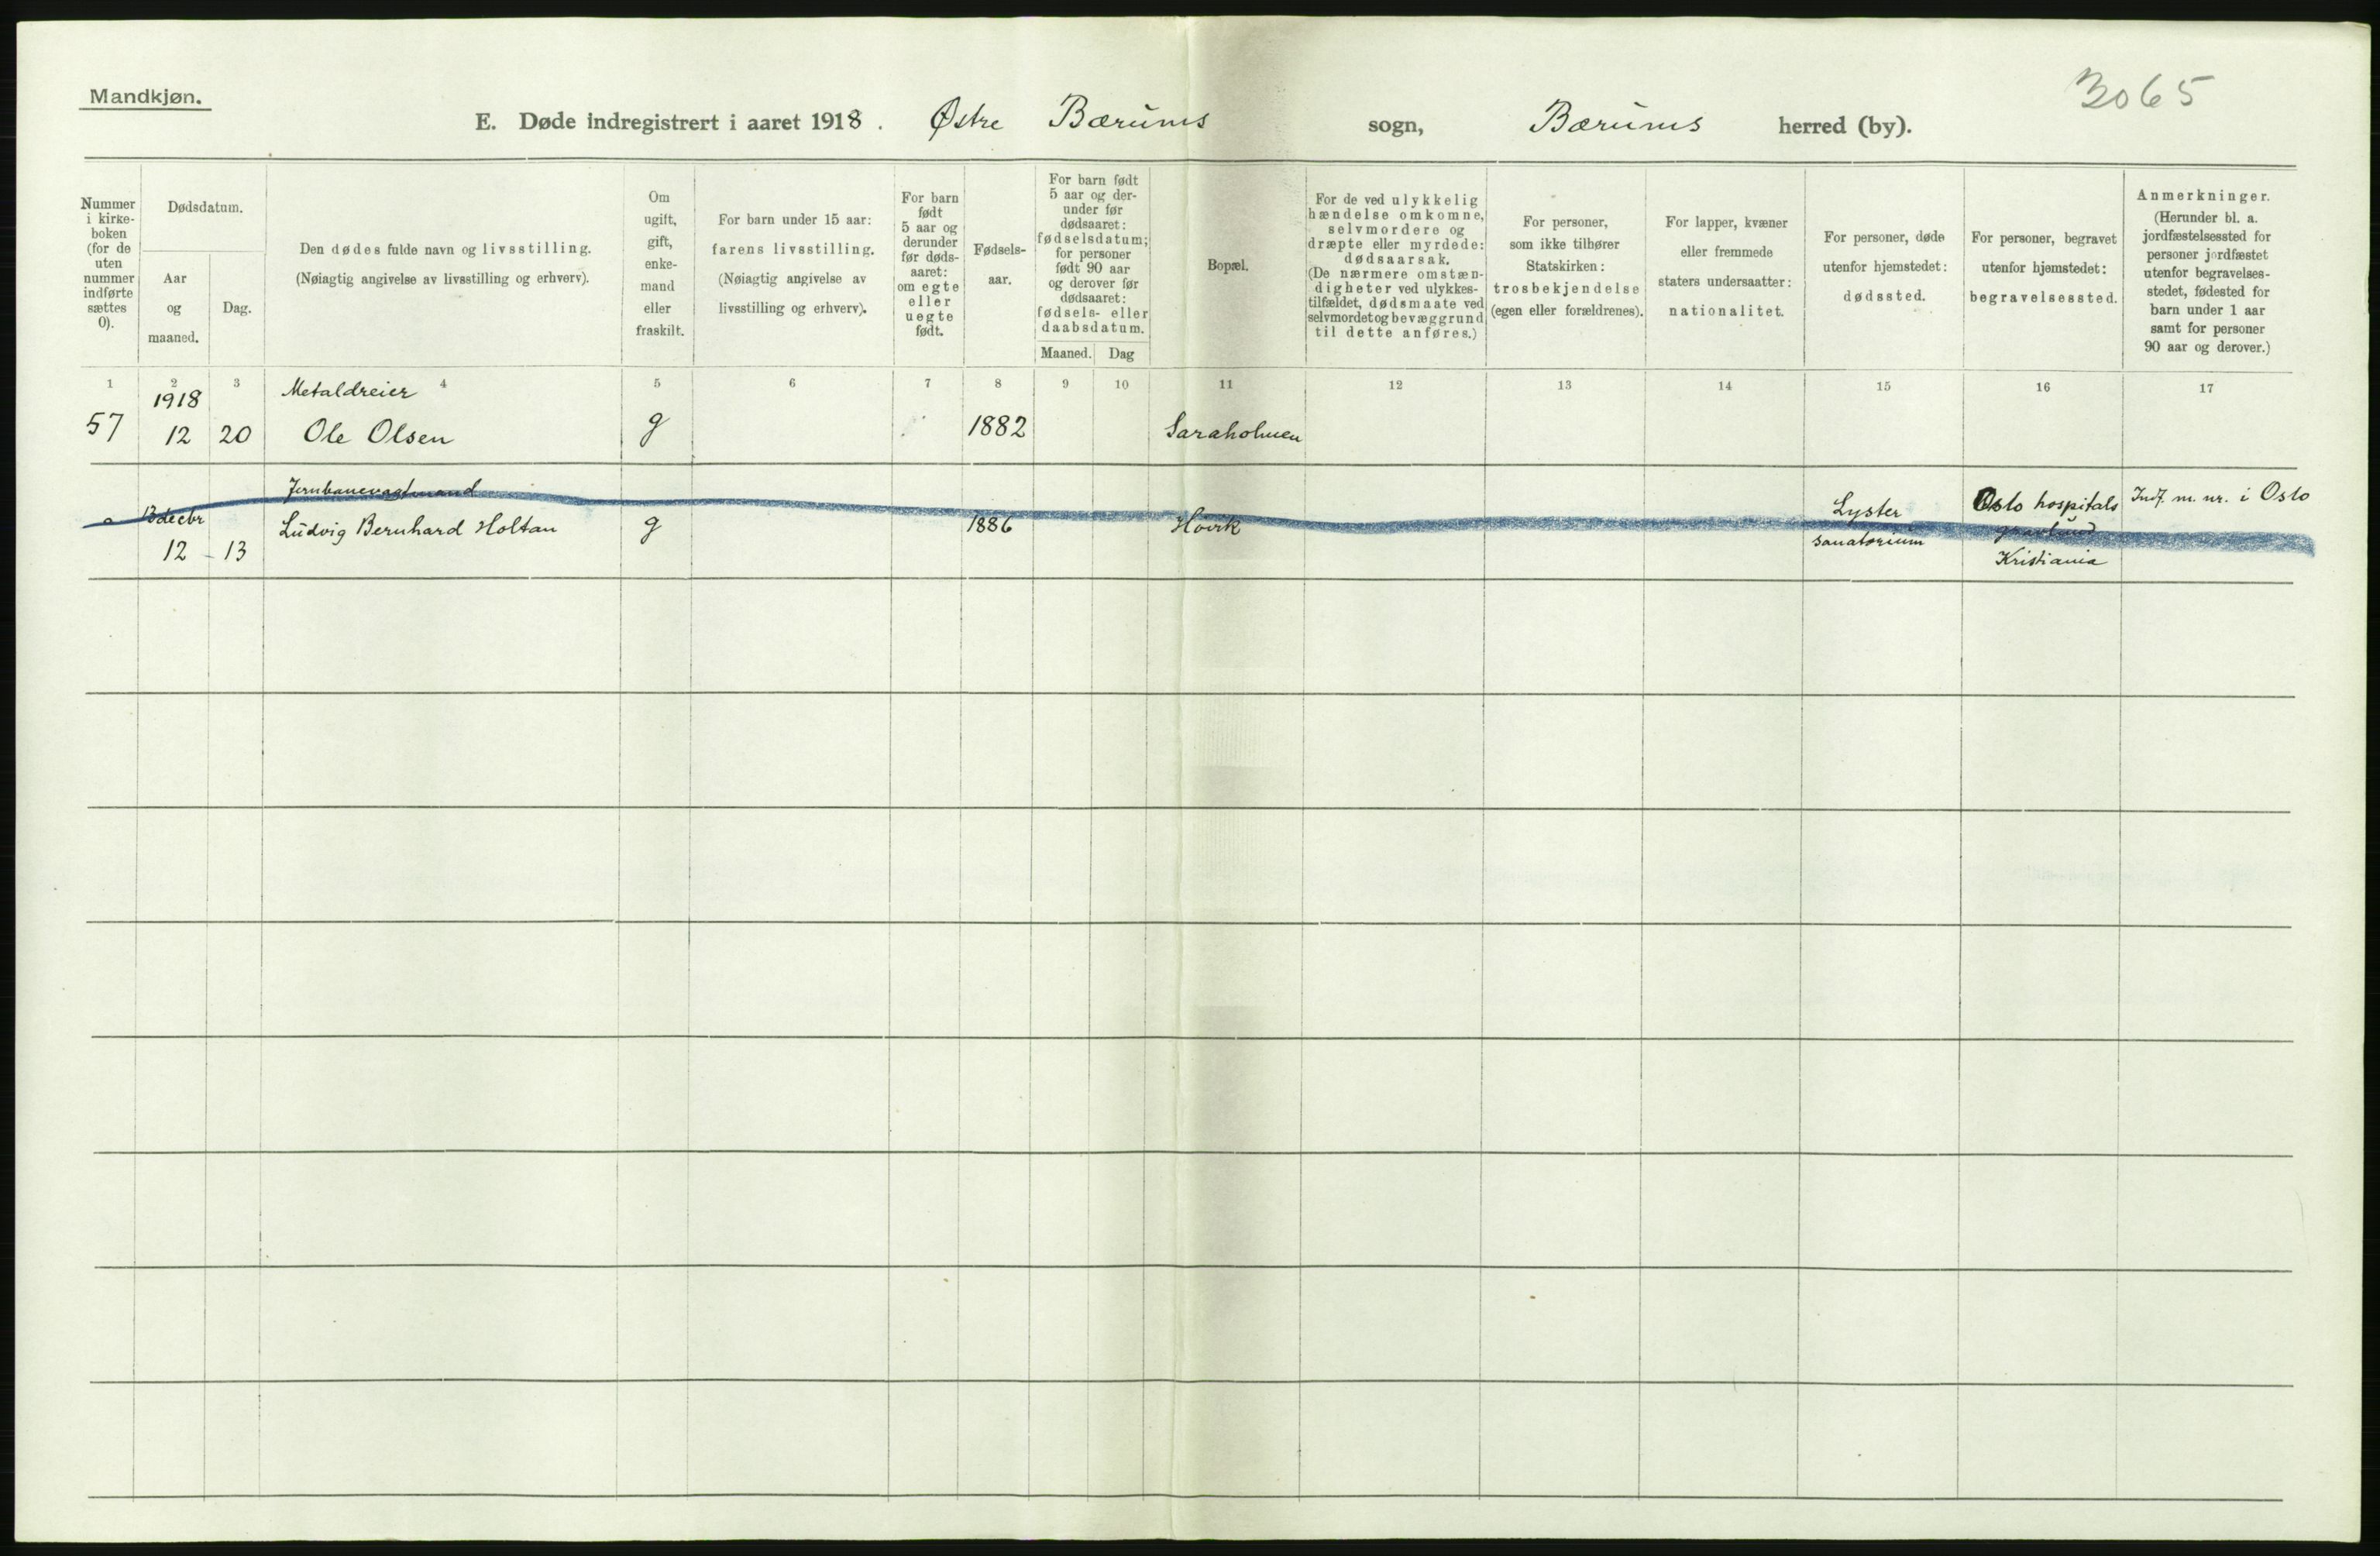 Mandkjøn.
3065
E. Døde indregistrert i aaret 1918. Østre Bærums sogn, Bærums herred (by).
Nummer
i kirke-
boken
(for de
uten
nummer
indførte
sættes
0).
Dødsdatum.
Aar
og
maaned.
Dag.
Den dødes fulde navn og livsstilling.
(Nøiagtig angivelse av livsstilling og erhverv).
Om
ugift,
gift,
enke-
mand
eller
fraskilt.
For barn under 15 aar:
farens livsstilling.
(Nøiagtig angivelse av
livsstilling og erhverv).
For barn
født
5 aar og
derunder
før døds-
aaret:
om egte
eller
uegte
født.
Fødsels-
aar.
For barn født
5 aar og der-
under før
dødsaaret:
fødselsdatum;
for personer
født 90 aar
og derover før
dødsaaret:
fødsels- eller
daabsdatum.
Maaned. Dag
Bopæl.
For de ved ulykkelig
hændelse omkomne,
selvmordere og
dræpte eller myrdede:
dødsaarsak.
(De nærmere omstæn-
digheter ved ulykkes-
tilfældet, dødsmaate ved
selvmordet og bevæggrund
til dette anføres.)
For personer,
som ikke tilhører
Statskirken:
trosbekjendelse
(egen eller forældrenes).
For lapper, kvæner
eller fremmede
staters undersaatter:
nationalitet.
For personer, døde
utenfor hjemstedet:
dødssted.
For personer, begravet
utenfor hjemstedet:
begravelsessted.
Anmerkninger.
(Herunder bl. a.
jordfæstelsessted for
personer jordfæstet
utenfor begravelses-
stedet, fødested for
barn under 1 aar
samt for personer
90 aar og derover.)
1 2 3 4 5 6 7 8 9 10 11 12 13 14 15 16 17
1918 Metaldreier
57 12 20 Ole Olsen g 1882 Saraholmen
Jernbanevagtmand
13 decbr Ludvig Bernhard Holtan g 1886 Høvik
12 - 13
Lyster
sanatorium
Oslo hospitals
gravlund
Kristiania
Indf. m. nr. i Oslo